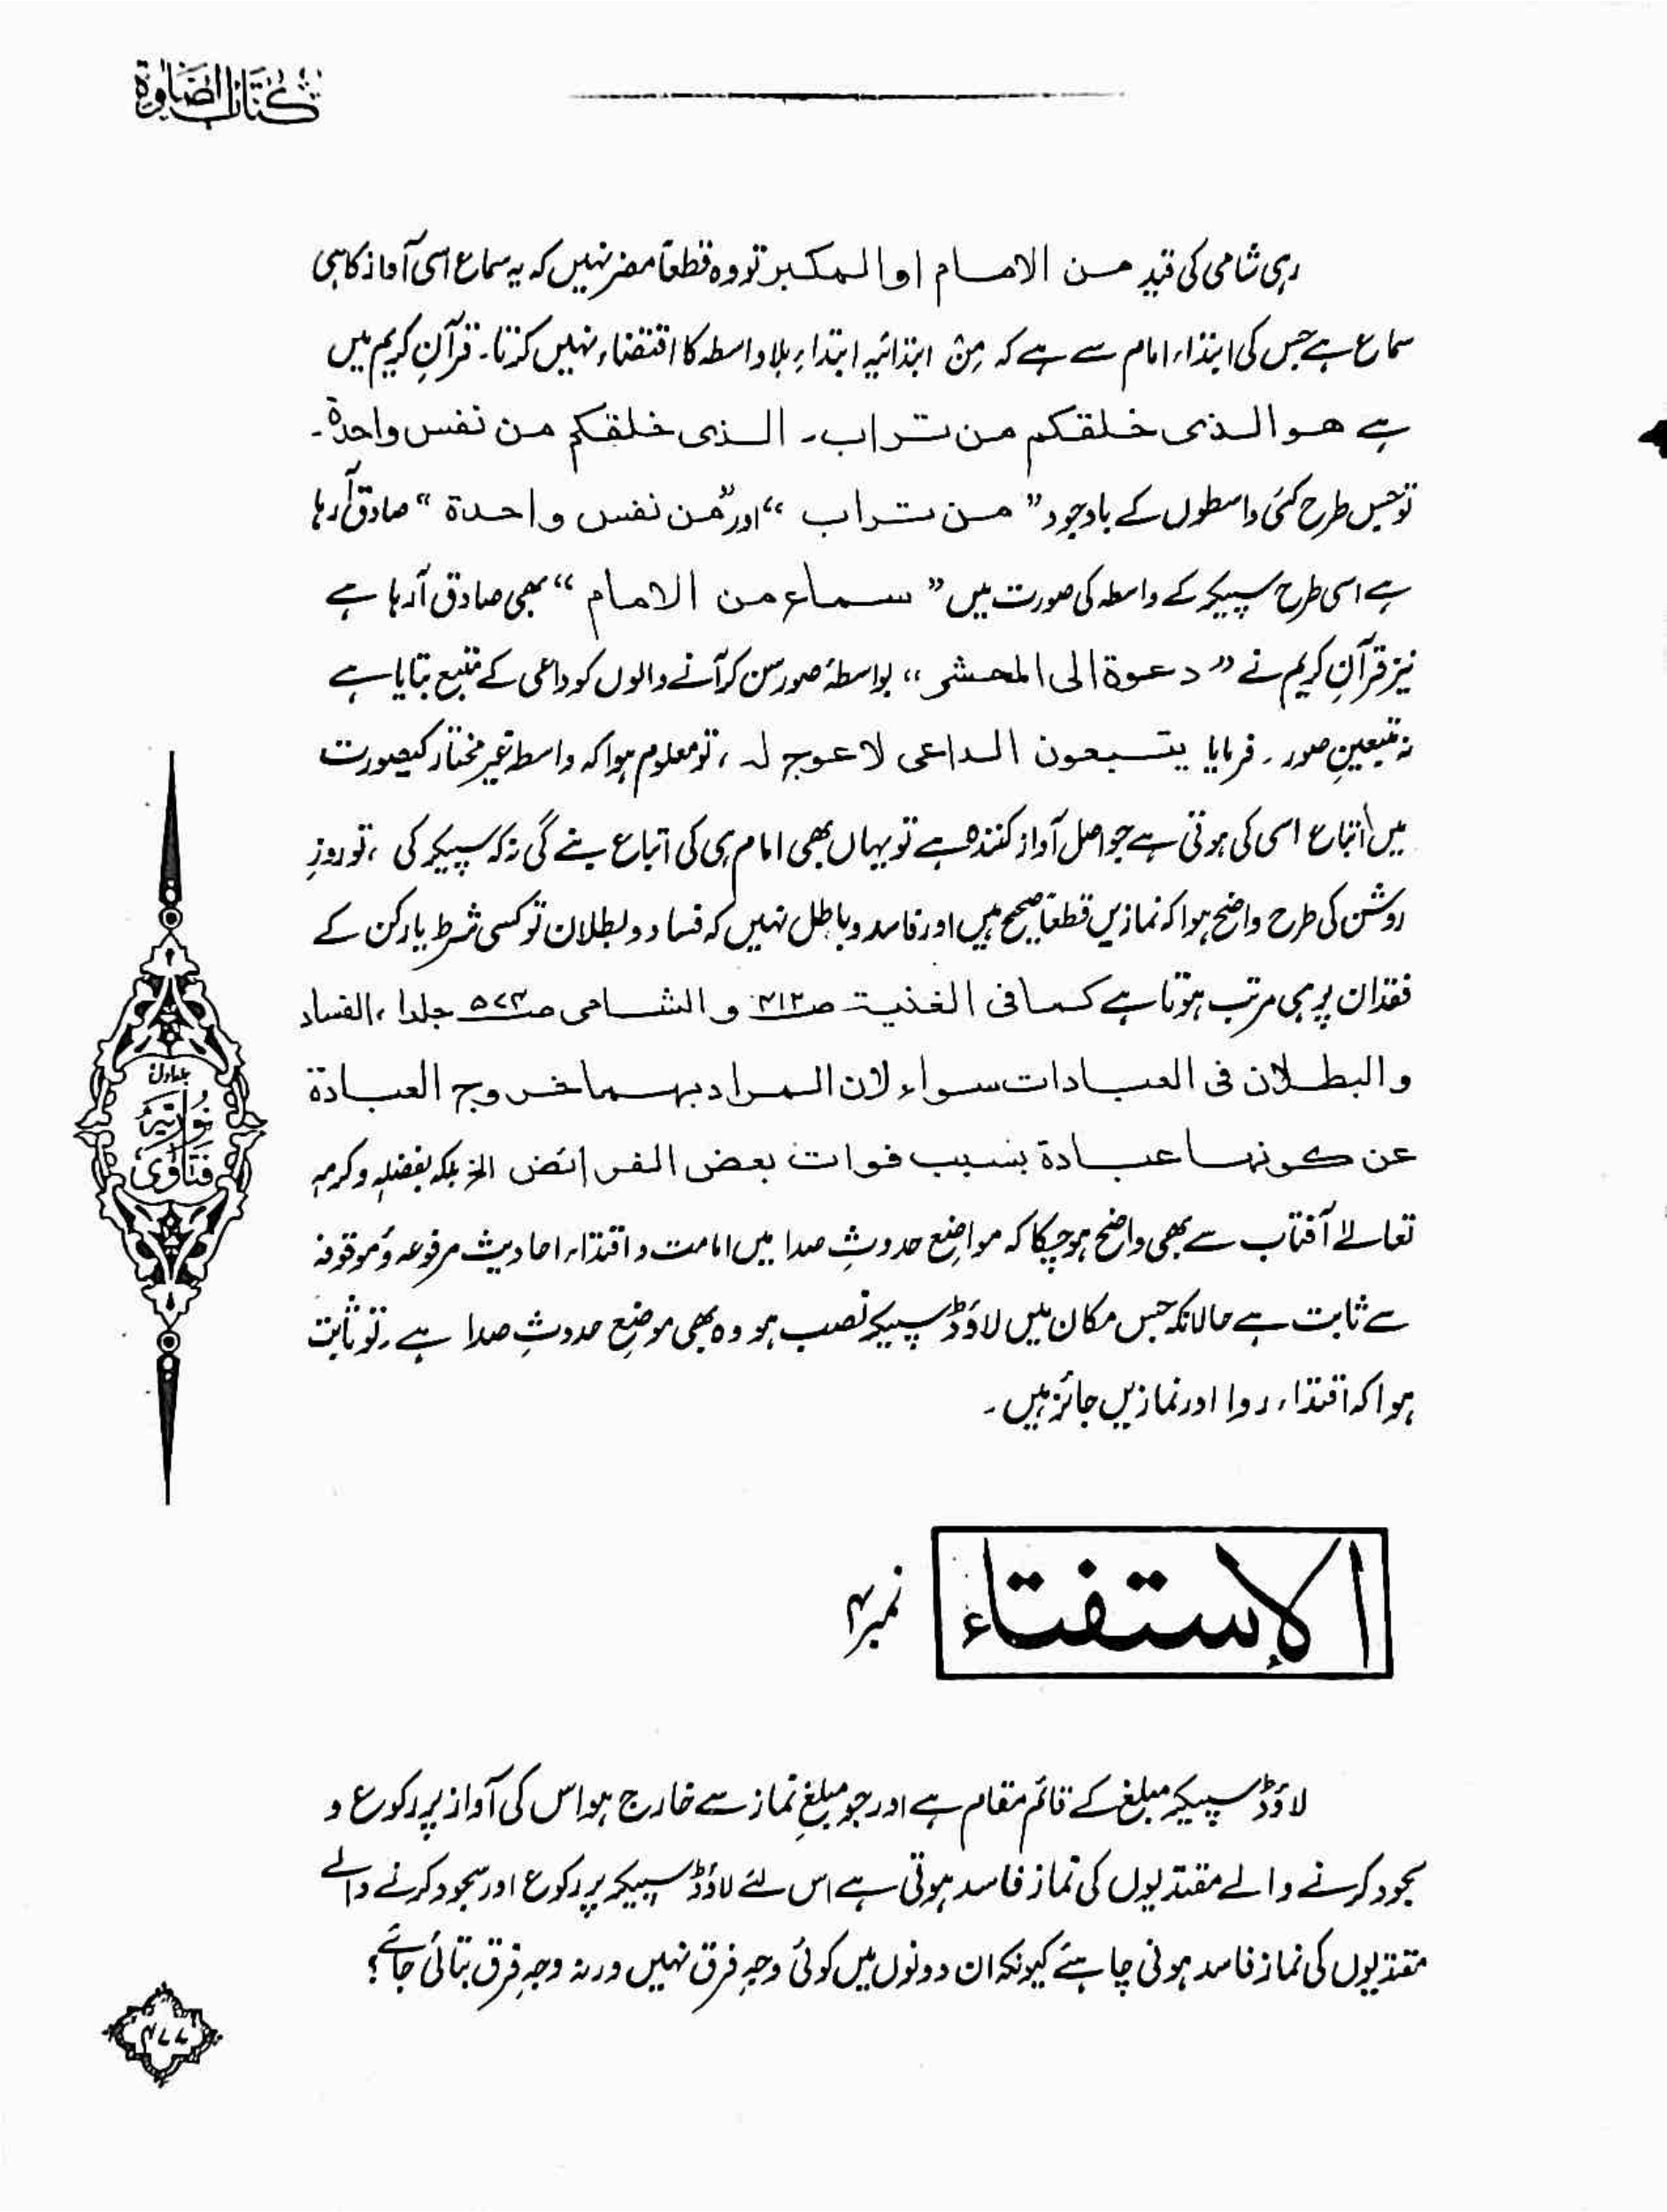 كتاب الصلوة
رہی شامی کی قید من الامام او المكبر تو وہ قطعاً مضر نہیں کہ یہ سماع اسی آواز کا ہی
سماع ہے جس کی ابتداء امام سے ہے کہ مِنْ ابتدائیہ ابتداءِ بلا واسطہ کا اقتضاء نہیں کرتا۔ قرآنِ کریم میں
ہے هو الذى خلقكم من تراب۔ الذى خلقكم من نفس واحدة۔
تو جس طرح کئی واسطوں کے باوجود ”من تراب“ اور ”من نفس واحدة“ صادق آ رہا
ہے اسی طرح سپیکر کے واسطہ کی صورت میں ”سماع من الامام“ بھی صادق آ رہا ہے
نیز قرآنِ کریم نے ”دعوة الى المحشر“ بواسطۂ صور سن کر آنے والوں کو داعی کے متبع بتایا ہے
نہ متبعینِ صور۔ فرمایا يتبعون الداعى لا عوج له، تو معلوم ہوا کہ واسطہ غیر مختار کیصورت
میں اتباع اسی کی ہوتی ہے جو اصل آواز کنندہ ہے تو یہاں بھی امام ہی کی اتباع بنے گی نہ کہ سپیکر کی، تو روزِ
روشن کی طرح واضح ہوا کہ نمازیں قطعاً صحیح ہیں اور فاسد و باطل نہیں کہ فساد و بطلان تو کسی شرط یا رکن کے
فقدان پر ہی مرتب ہوتا ہے كما فى الغنية ص۴۱۲ و الشامى ص۵۷۳ جلد۱، الفساد
و البطلان فى العبادات سواء لان المراد بهما خروج العبادة
عن كونها عبادة بسبب فوات بعض الفرائض الخ بلکہ بفضلہ و کرمہ
تعالےٰ آفتاب سے بھی واضح ہو چکا کہ مواضعِ حدوثِ صدا میں امامت و اقتداء احادیث مرفوعہ و موقوفہ
سے ثابت ہے حالانکہ جس مکان میں لاؤڈ سپیکر نصب ہو وہ بھی موضعِ حدوثِ صدا ہے۔ تو ثابت
ہوا کہ اقتداء روا اور نمازیں جائز ہیں۔
جلد اول
نُوریَّہ
فَتَاوٰی
الاِستفتاء نمبر۴
لاؤڈ سپیکر مبلغ کے قائم مقام ہے اور جو مبلغِ نماز سے خارج ہو اس کی آواز پر رکوع و
سجود کرنے والے مقتدیوں کی نماز فاسد ہوتی ہے اس لئے لاؤڈ سپیکر پر رکوع اور سجود کرنے والے
مقتدیوں کی نماز فاسد ہونی چاہئے کیونکہ ان دونوں میں کوئی وجہِ فرق نہیں ورنہ وجہِ فرق بتائی جائے؟
۴۷۷